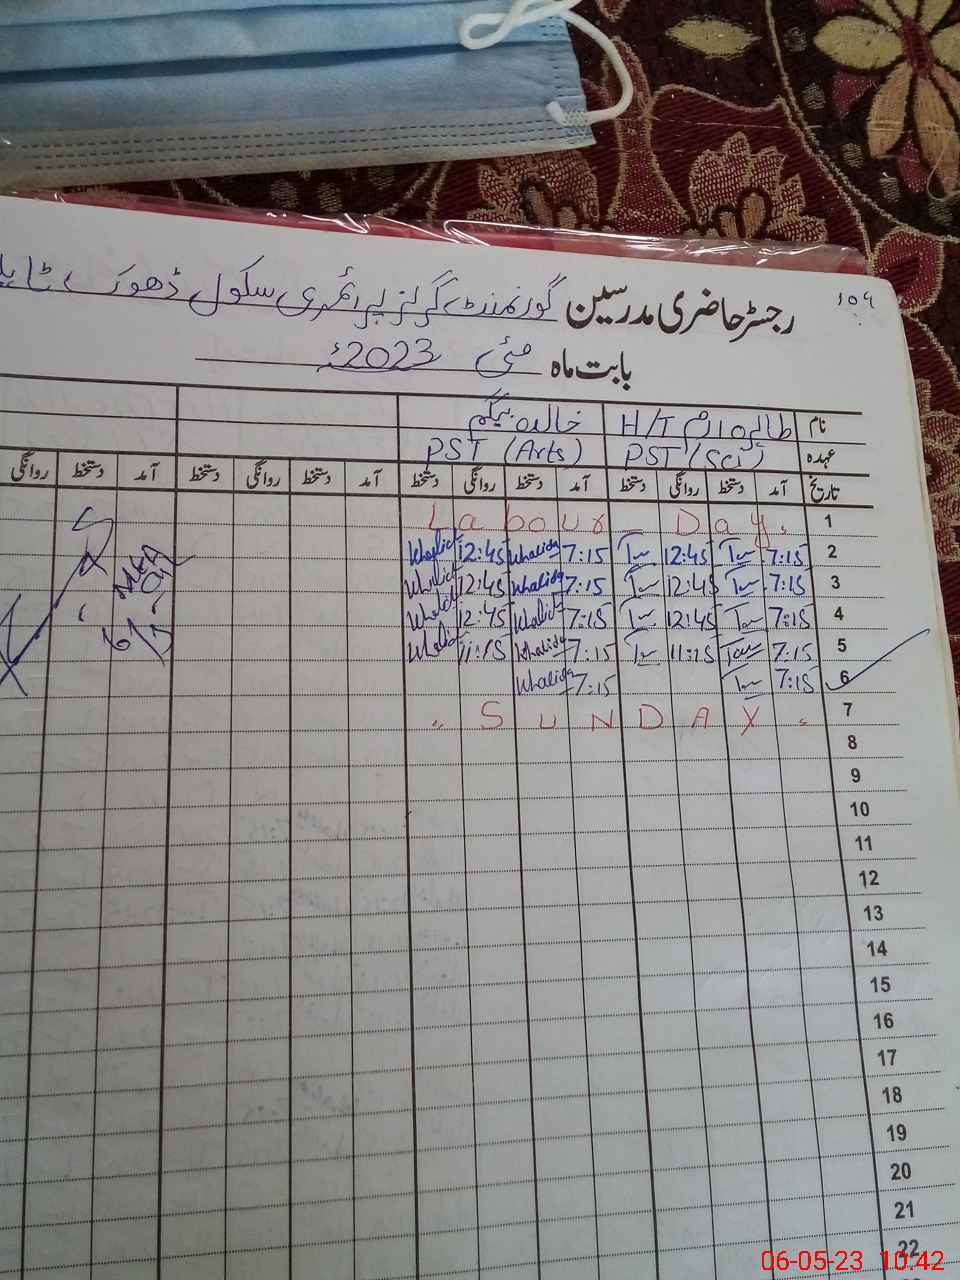 104
رجسٹر حاضری مدرسین گورنمنٹ گرلز پرائمری سکول ڈھوک
بابت ماہ مئی 2023ء
نام H/T خالدہ بیگم
عہدہ PST (Sci) PST (Arts)
تاریخ آمد دستخط روانگی دستخط آمد دستخط روانگی دستخط آمد دستخط روانگی دستخط آمد دستخط روانگی
1 Labour Day.
2 7:15 12:45 7:15 Khalida 12:45 Khalida
3 7:15 12:45 7:15 Khalida 12:45 Khalida
4 7:15 12:45 7:15 Khalida 12:45 Khalida
5 7:15 11:15 7:15 Khalida 11:15 Khalida
6 7:15 7:15 Khalida
7 SUNDAY
8
9
10
11
12
13
14
15
16
17
18
19
20
21
22
06-05-23 10.42